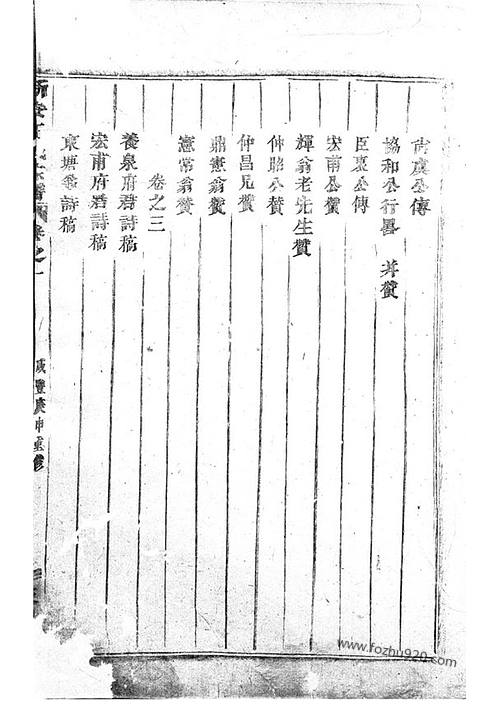 虞公傳
協和公行畧 并贊
臣裏公傳
宏甫公贊
輝翁老先生贊
仲聡公贊
仲昌兄贊
鼎憲翁贊
憲常翁贊
卷之三
養泉府君詩稿
宏甫府君詩稿
東塘詩稿
咸豐庚申重修
www.fozhu920.com